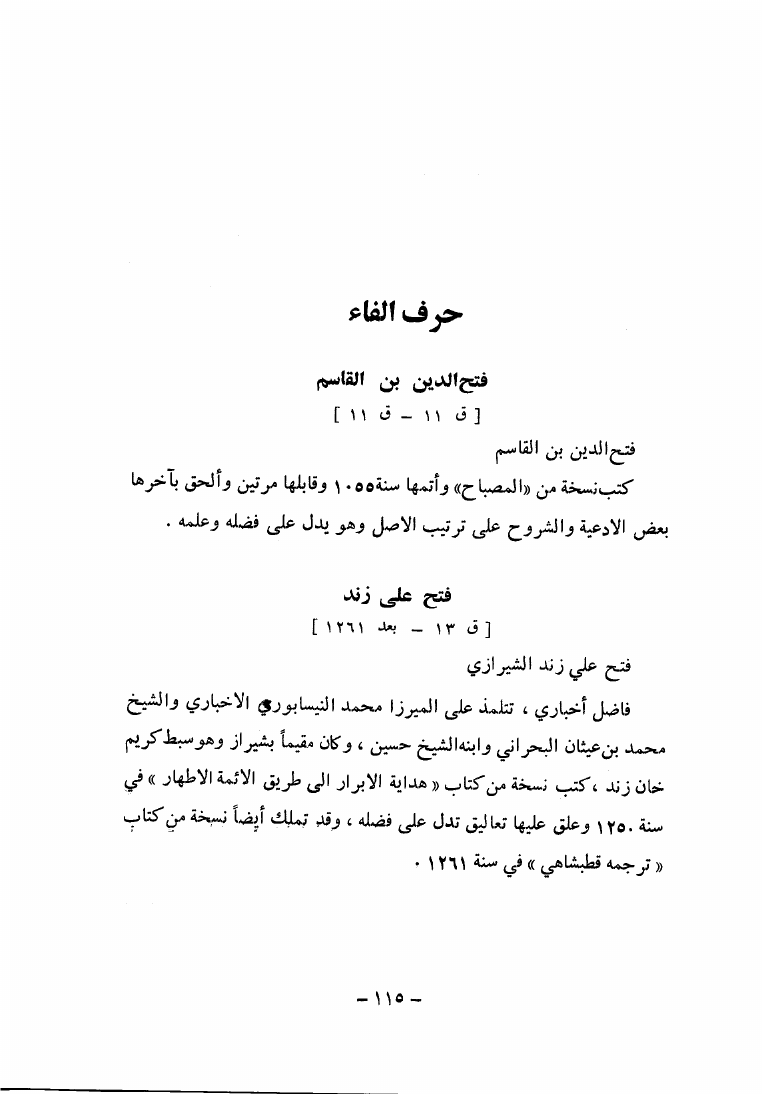 حرف الفاء
فتح‌الدين بن القاسم
[ ق ١١ – ق ١١ ]
فتح‌الدين بن القاسم
كتب نسخة من «المصباح» وأتمها سنة ١٠٥٥ وقابلها مرتين وألحق بآخرها
بعض الادعية والشروح على ترتيب الاصل وهو يدل على فضله وعلمه .
فتح على زند
[ ق ١٣ – بعد ١٢٦١ ]
فتح علي زند الشيرازي
فاضل أخباري ، تتلمذ على الميرزا محمد النيسابوري الاخباري والشيخ
محمد بن عيثان البحراني وابنه الشيخ حسين ، وكان مقيماً بشيراز وهو سبط كريم
خان زند ، كتب نسخة من كتاب « هداية الابرار الى طريق الائمة الاطهار » في
سنة ١٢٥٠ وعلق عليها تعاليق تدل على فضله ، وقد تملك أيضاً نسخة من كتاب
« ترجمه قطبشاهي » في سنة ١٢٦١ .
– ١١٥ –